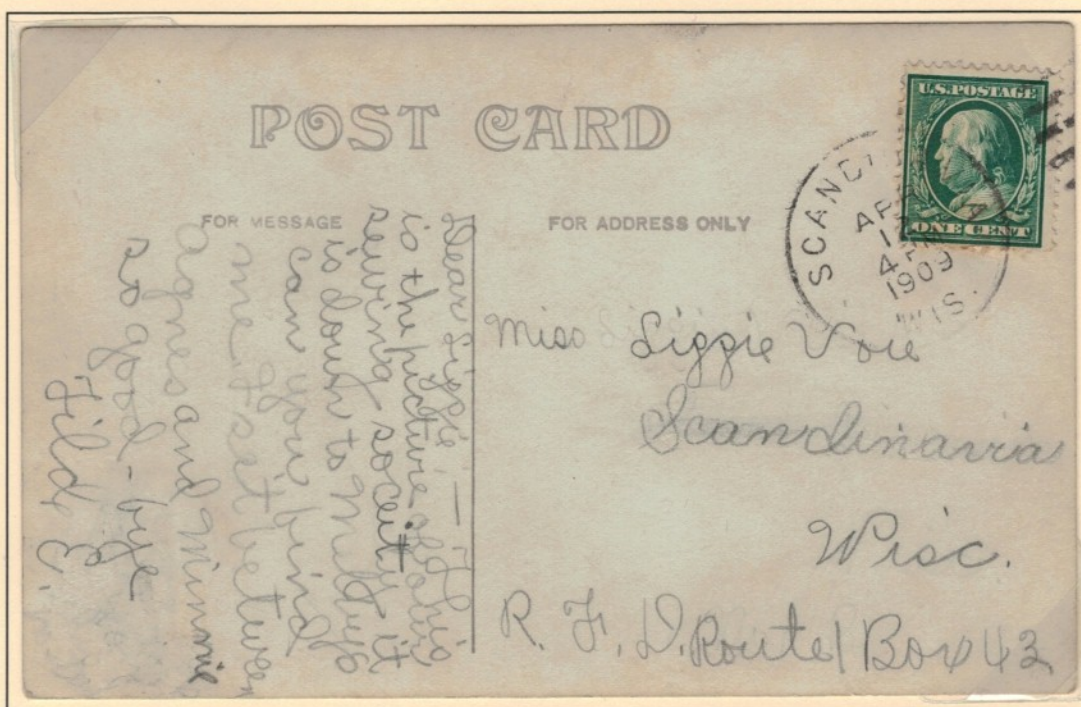 POST CARD
FOR MESSAGE
FOR ADDRESS ONLY
U.S. POSTAGE
ONE CENT
SCAND A
AP
1
4 PM
1909
WIS.
Dear Lizzie — This
is the picture of our
sewing soceity it
is down to
can you find
me I sat between
agnes and Minnie
so good-bye
Tilda E.
Miss Lizzie Voie
Scandinavia
Wisc.
R. F. D. Route 1 Box 42